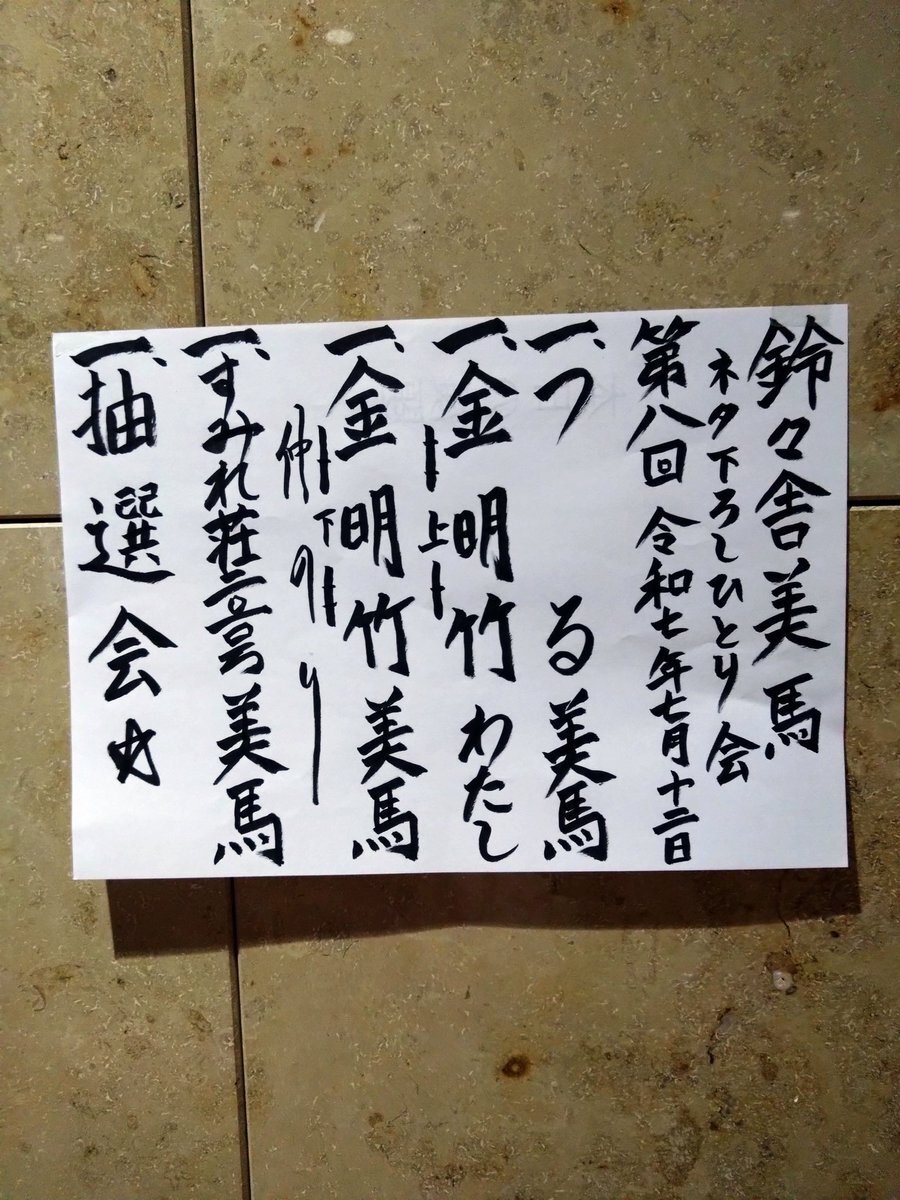 鈴々舎美馬
ネタ下ろしひとり会
第八回 令和七年七月十二日
一、つる 美馬
一、金明竹 わたし
―上―
一、金明竹 美馬
―下―
仲のり
一、すみれ荘二〇一号 美馬
一、抽選会☆